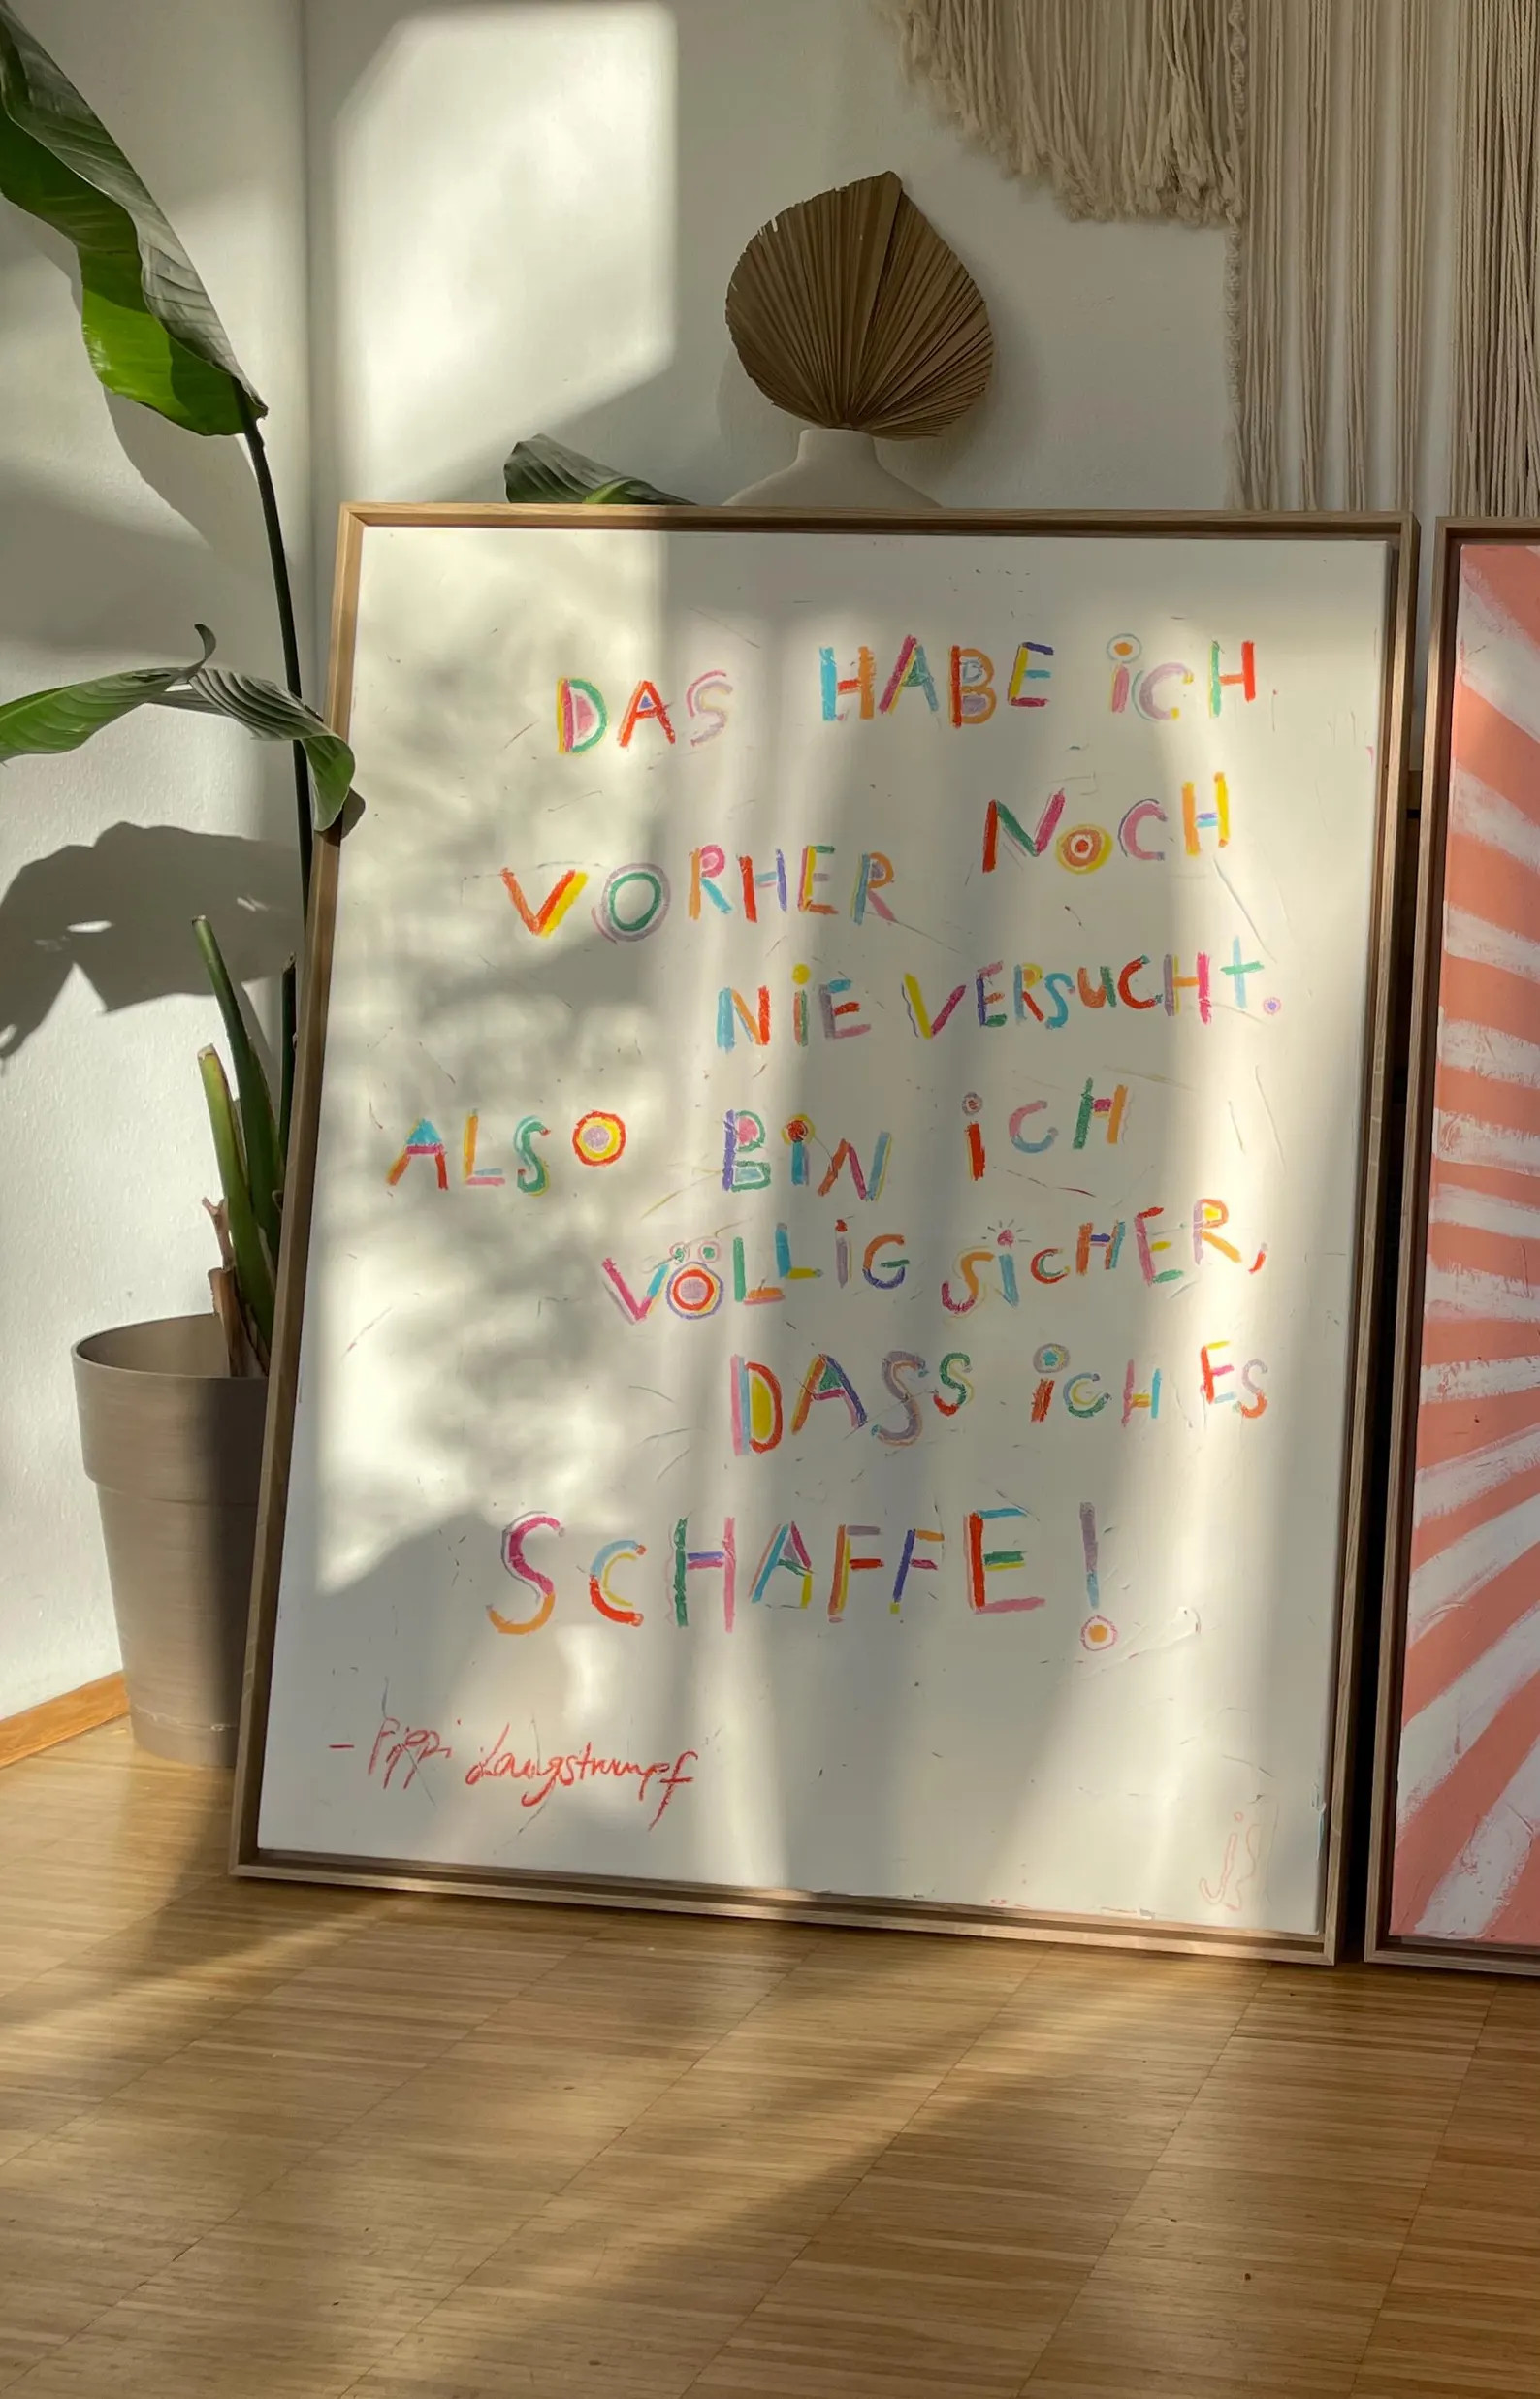 DAS HABE iCH
VORHER NOCH
NiE VERSUCHt.
ALSO BiN iCH
VÖLLiG SiCHER,
DASS iCH ES
SCHAFFE!
– Pippi Langstrumpf